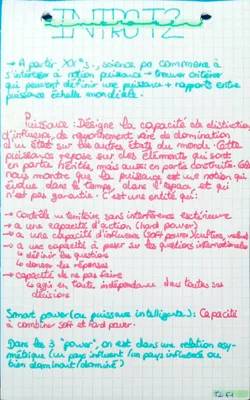 INTRO T2
→ A partir XXe s., science po commence à
s'intéresser à notion puissance → trouver critères
qui peuvent définir une puissance + rapports entre
puissance échelle mondiale.
Puissance : Désigne la capacité de distinction
d'influence, de rayonnement voire de domination
d'un État sur les autres États du monde. Cette
puissance repose sur des éléments qui sont
en partie hérités, mais aussi en partie construits. Cela
nous montre que la puissance est une notion qui
évolue dans le temps, dans l'espace, et qui
n'est pas garantie. C'est une entité qui :
→ Contrôle un territoire sans interférence extérieure
→ a une capacité d'action (hard power)
→ a une capacité d'influence (soft power)
→ a une capacité à peser sur les questions internationales
→ définir les questions
→ donner les réponses
→ capacité de ne pas faire
→ agir en toute indépendance dans toutes ses
décisions
Smart power (ou puissance intelligente) : Capacité
à combiner soft et hard power.
Dans les 3 "power", on est dans une relation asy-
métrique (un pays influent / un pays influencé ou
bien dominant/dominé)